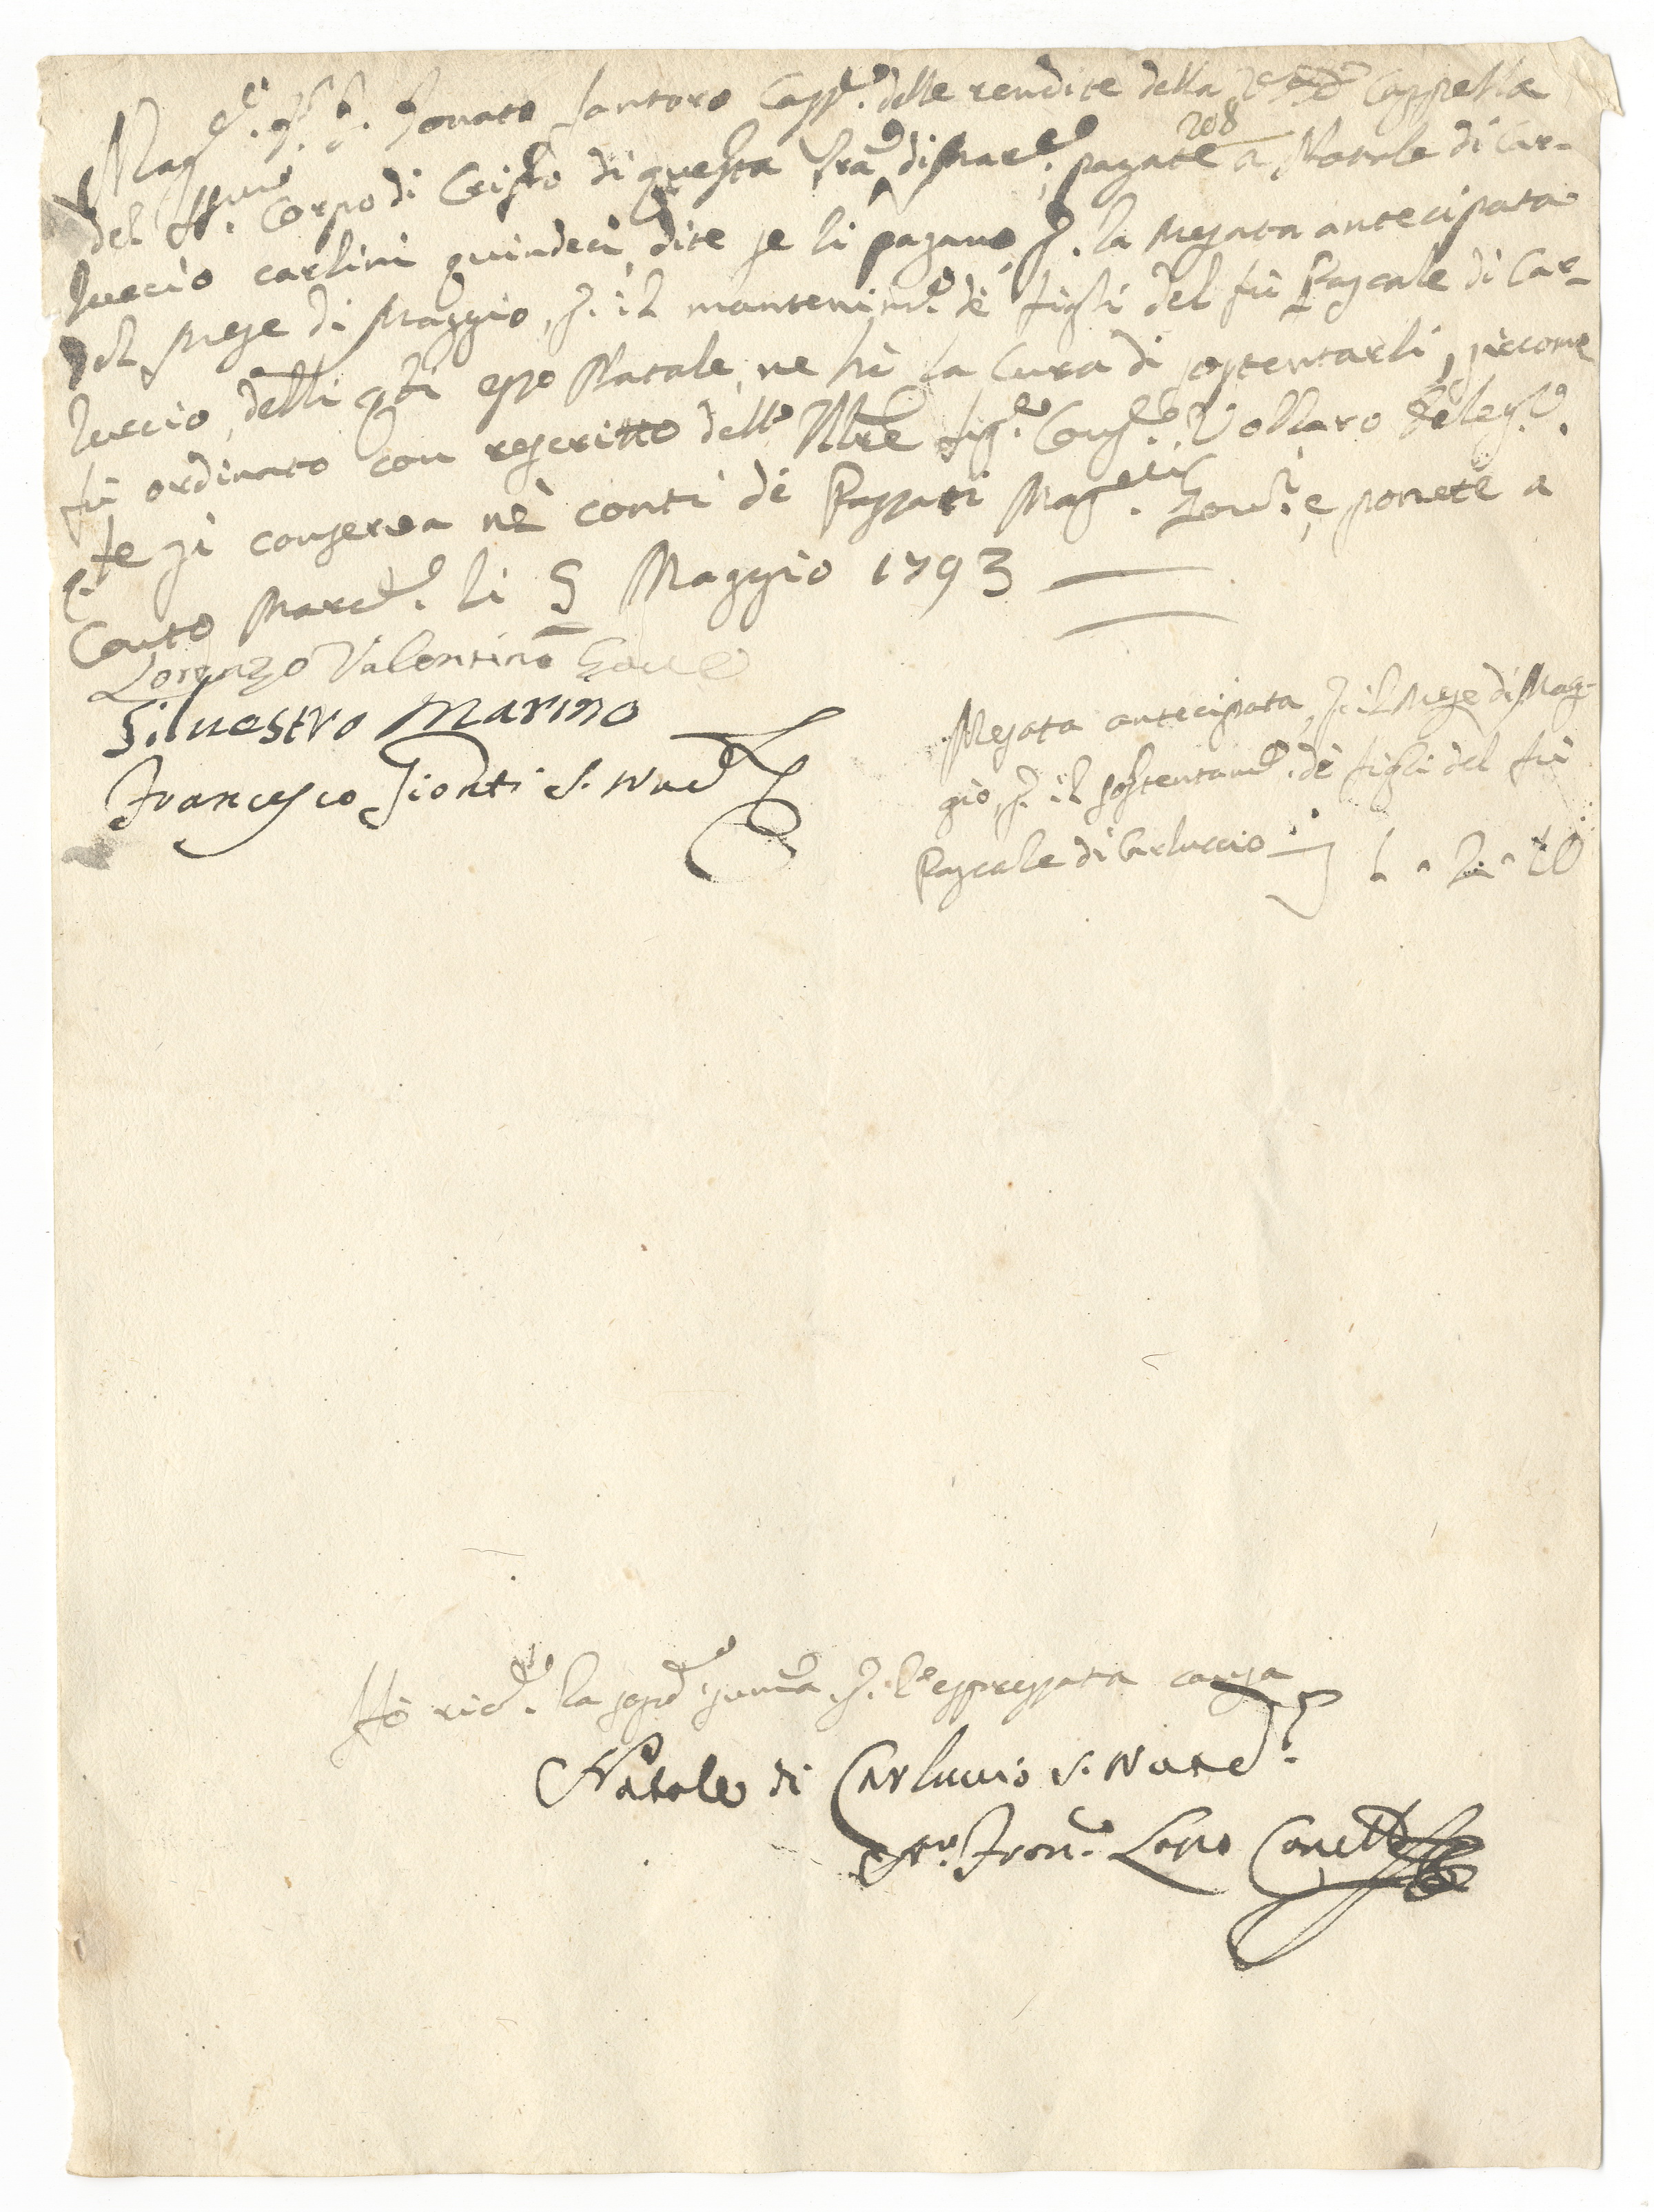 Mag.co q.m F. Donato Santoro Capp.no delle rendite della Cappella
208
del SS.mo Corpo di Cristo di questa Trã di Marc.e, pagate a Natale di Car-
luccio carlini quindeci, dite se li pagano p. la Mesata antecipata
del Mese di Maggio, p. il mantenim.to dè figli del fù Pascale di Car-
luccio, delli q.li esso Natale, ne hà la Cura di sostentarli, siccome
fù ordinato con rescritto dell' Ill.re Sig.r Cons.re Vollaro Deleg.to,
che si conserva nè conti dè Passati Mag.ci Gov.ri, e ponete a
Conto Marc.e li 5 Maggio 1793
Lorenzo Valentino Gov.e
Silvestro Marino
Francesco Gionti S. N. ed
Mesata antecipata, p. il Mese di Mag-
gio, p. il sostentam.to dè figli del fù
Pascale di Carluccio 1 - 2 - 10
Hò ric.to la sop.ta summa p. l'espressata causa
Natale di Carluccio
Fran.co Lopo